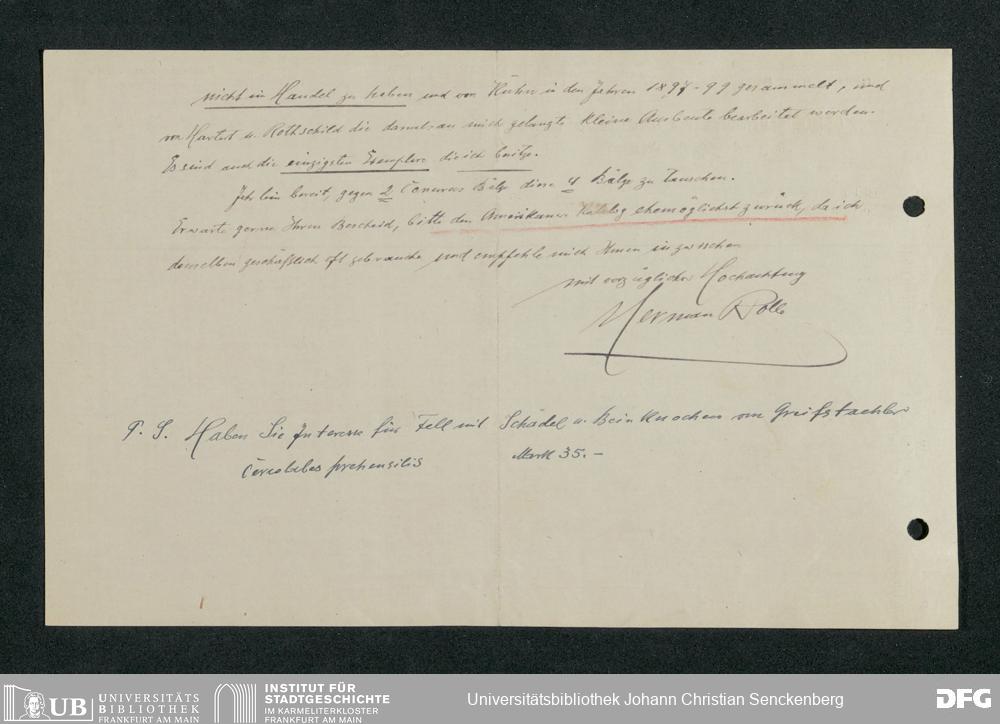 nicht im Handel zu haben und von Kühn in den Jahren 1897-99 gesammelt, und
von Hartert u. Rothschild die damals an mich gelangte kleine Ausbeute bearbeitet worden.
Es sind auch die einzigsten Exemplare die ich besitze.
Ich bin bereit, gegen 2 Conurus Bälge diese 4 Bälge zu tauschen.
Erwarte gerne Ihren Bescheid, bitte den Amerikaner Katalog ehemöglichst zurück, da ich
denselben geschäftlich oft gebrauche und empfehle mich Ihnen inzwischen
mit vorzüglicher Hochachtung
Herman Rolle
P. S. Haben Sie Interesse für Fell mit Schädel u. Beinknochen von Greifstachler
Cercolabes prehensilis Mark 35.-
UB UNIVERSITÄTS
BIBLIOTHEK
FRANKFURT AM MAIN
INSTITUT FÜR
STADTGESCHICHTE
IM KARMELITERKLOSTER
FRANKFURT AM MAIN
Universitätsbibliothek Johann Christian Senckenberg
DFG